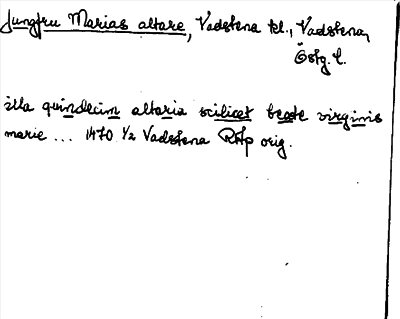 Jungfru Marias altare, Vadstena kl., Vadstena,
Östg. l.
illa quindecim altaria scilicet beate virginis
marie ... 1470 1/2 Vadstena RAp orig.